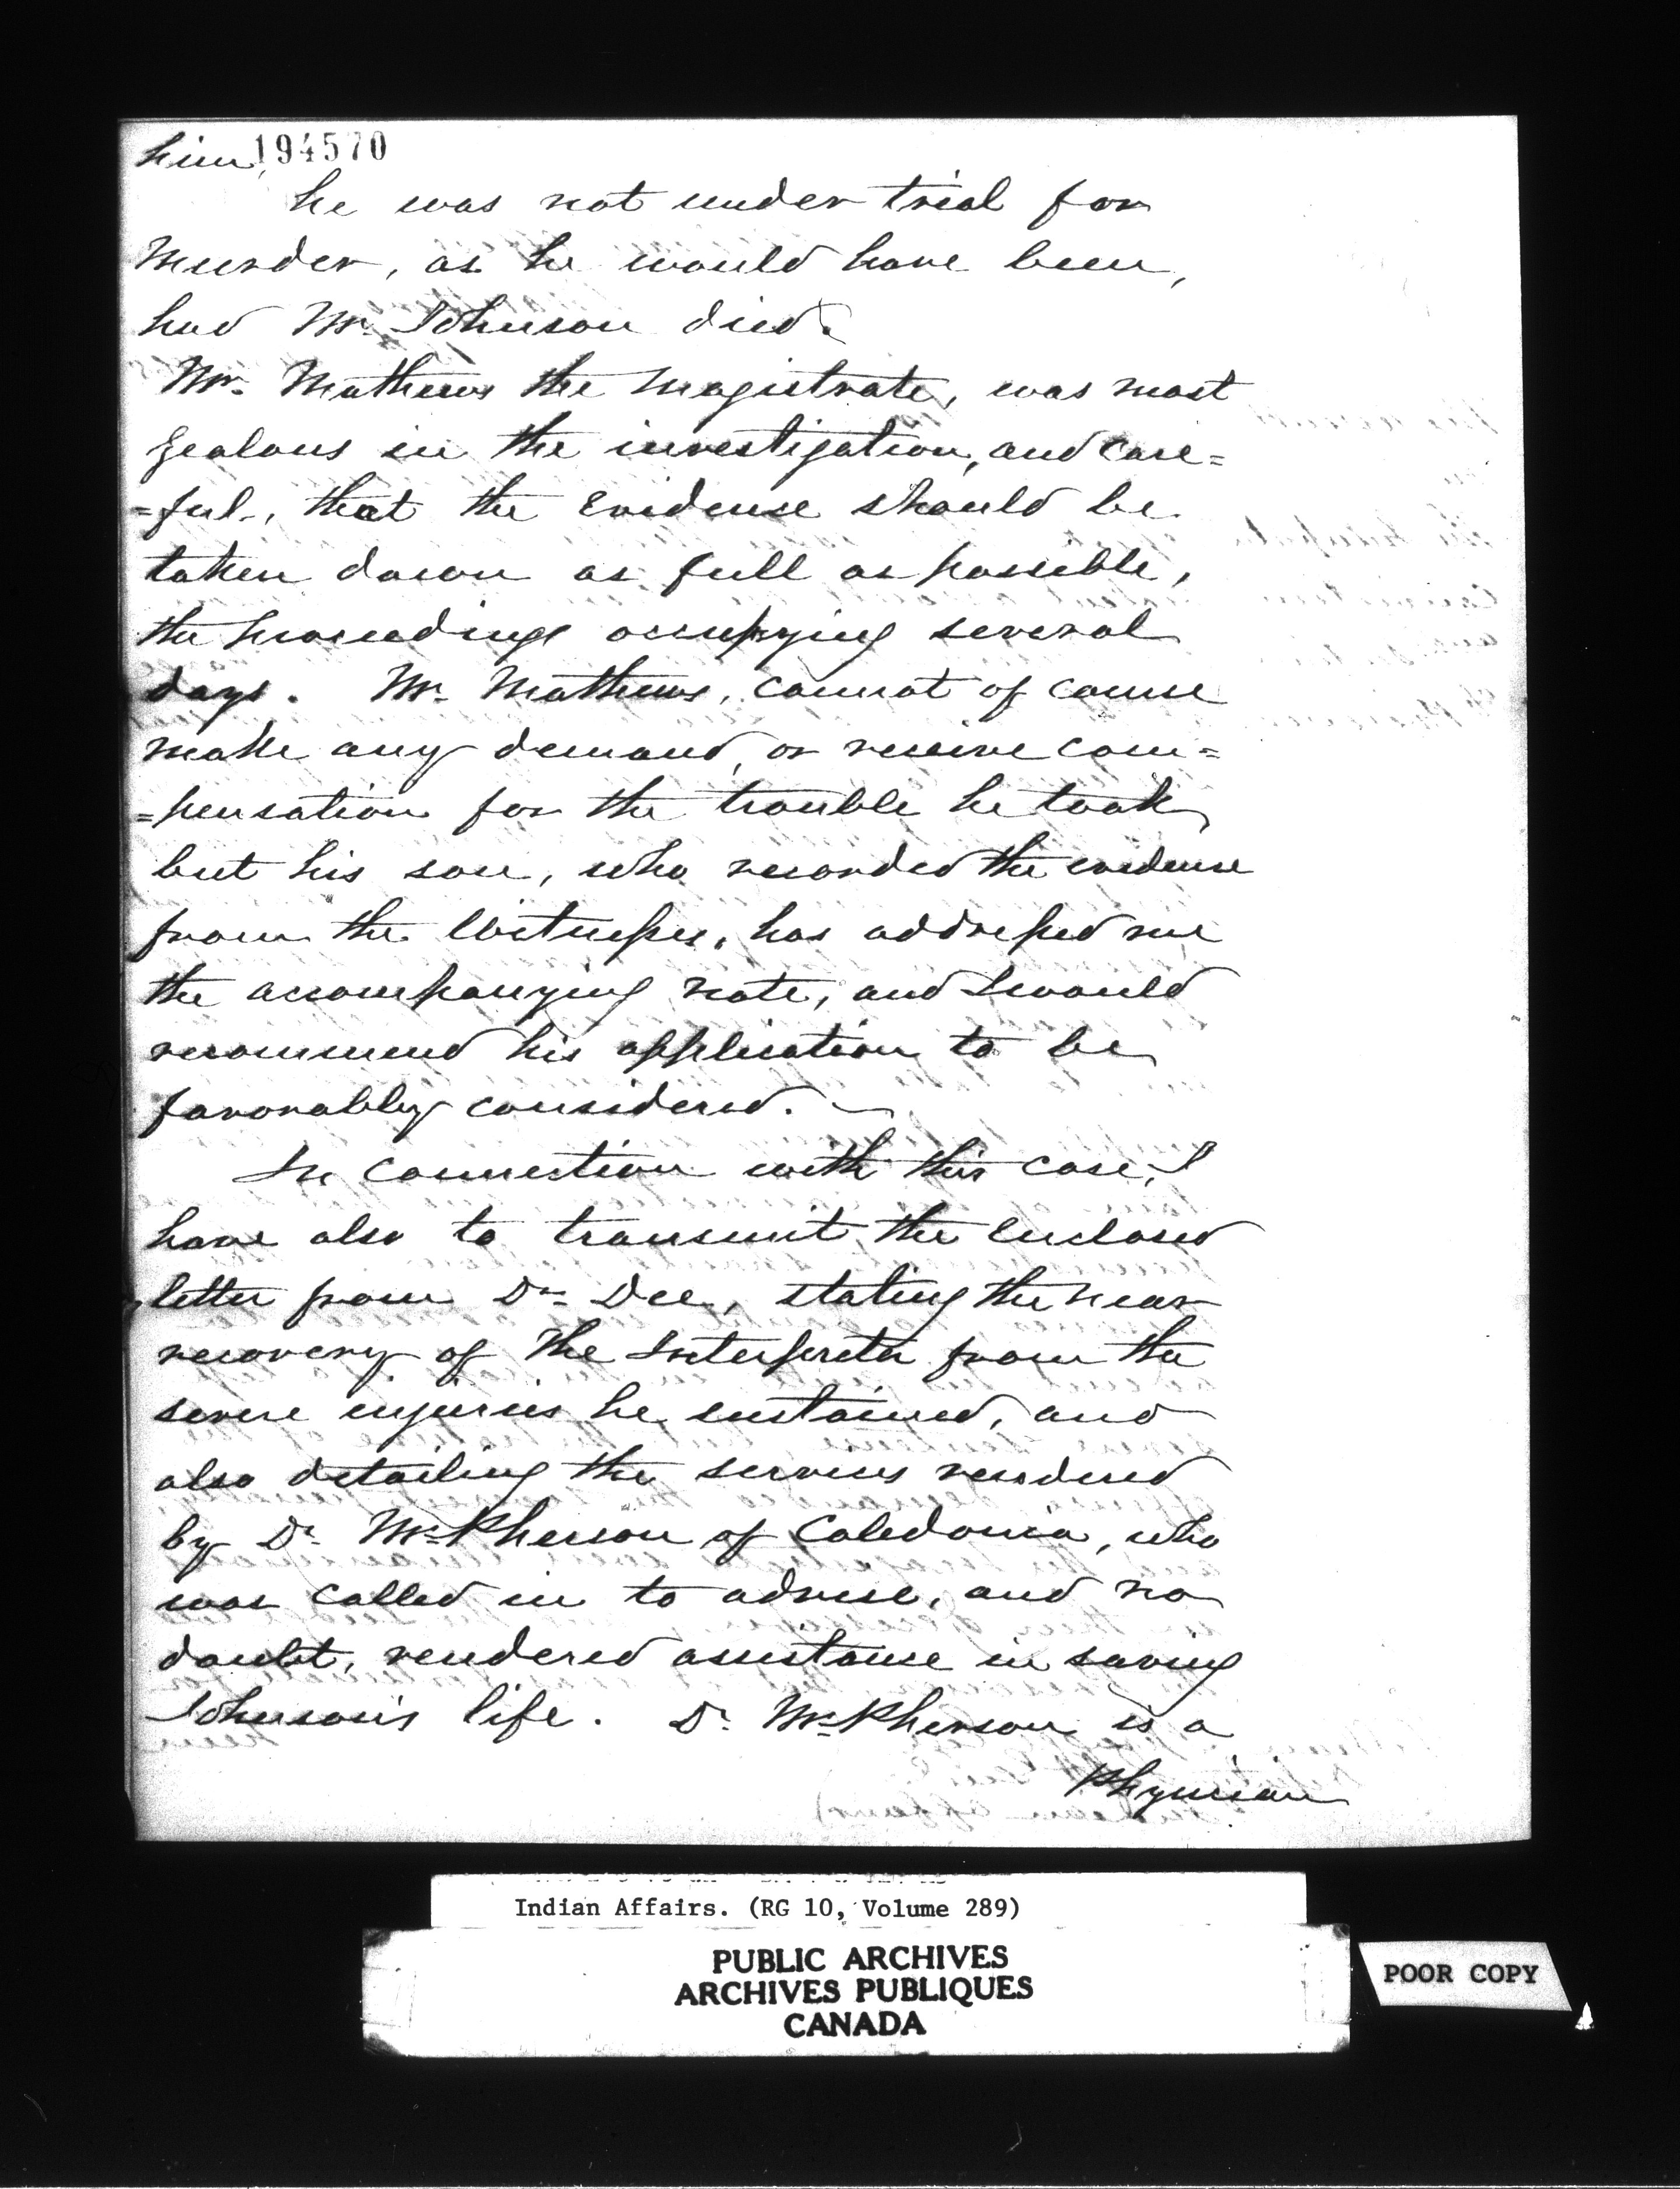 him, 194570
he was not under trial for
Murder, as he would have been,
had Mr. Johnson died.
Mr. Mathews the Magistrate, was most
zealous in the investigation, and care=
=ful, that the Evidence should be
taken down as full as possible,
the proceedings occupying several
days. Mr. Mathews, cannot of course
make any demand, or receive com=
=pensation for the trouble he took,
but his son, who recorded the evidence
from the Witnesses, has addressed me
the accompanying note, and I would
recommend his application to be
favorably considered. —
In connection with this case, I
have also to transmit the enclosed
letter from Dr. Dee, stating the near
recovery of the Interpreter from the
severe injuries he sustained, and
also detailing the services rendered
by Dr. McPherson of Caledonia, who
was called in to advise, and no
doubt, rendered assistance in saving
Johnson's life. Dr. McPherson is a
Physician
Indian Affairs. (RG 10, Volume 289)
PUBLIC ARCHIVES
ARCHIVES PUBLIQUES
CANADA
POOR COPY